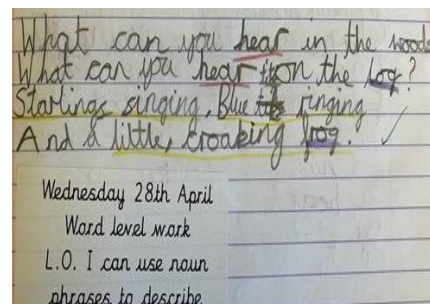 What can you hear in the woods
What can you hear on the log?
Starlings singing, Blue ringing
And a little, croaking frog.
Wednesday 28th April
Word level work
L.O. I can use noun
phrases to describe